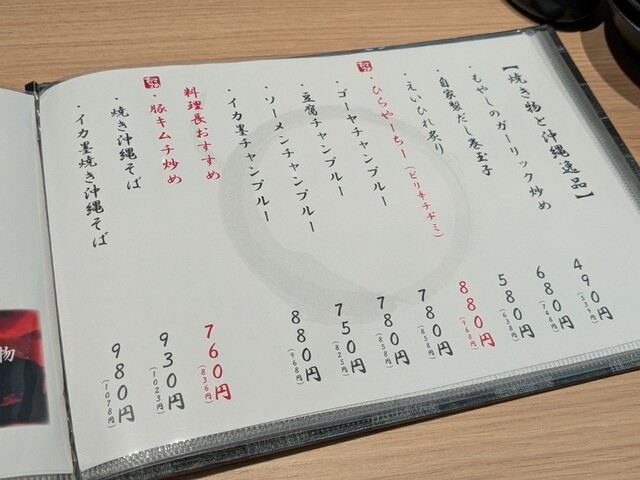 【焼き物と沖縄逸品】
・もやしのガーリック炒め 490円(539円)
・自家製だし巻玉子 680円(748円)
・えいひれ炙り 580円(638円)
・ひらやーちー(ピリキチヂミ) 880円(968円)
・ゴーヤチャンプルー 780円(858円)
・豆腐チャンプルー 780円(858円)
・ソーメンチャンプルー 750円(825円)
・イカ墨チャンプルー 880円(968円)
料理長おすすめ
・豚キムチ炒め 760円(836円)
・焼き沖縄そば 930円(1023円)
・イカ墨焼き沖縄そば 980円(1078円)
物